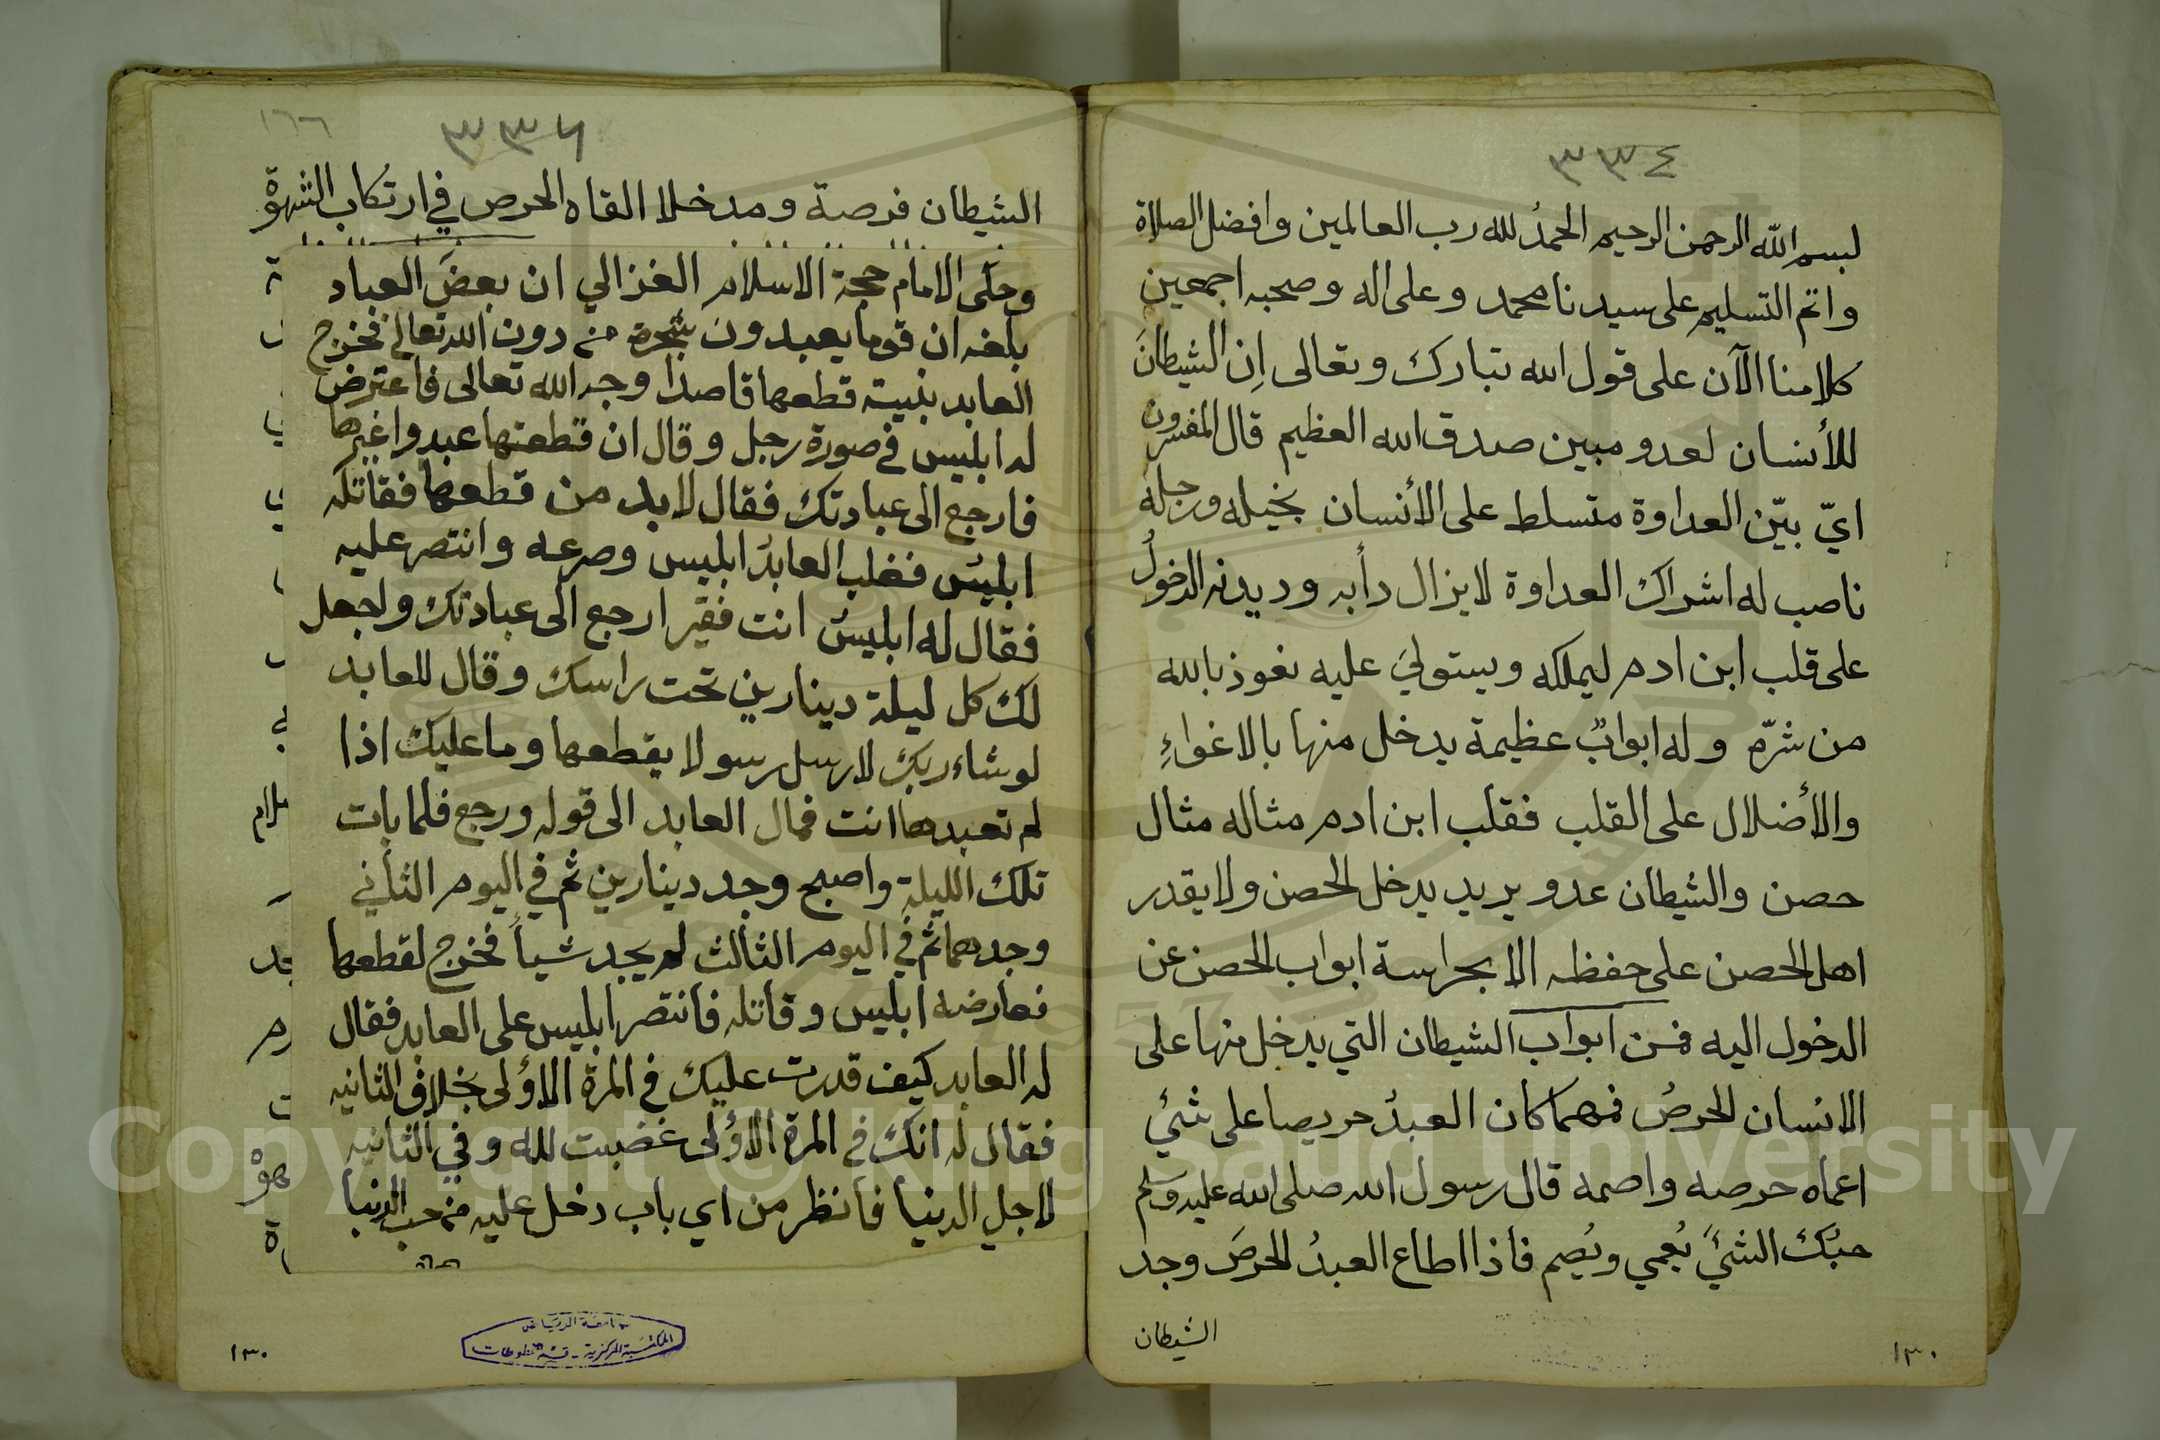 ٣٣٤
بسم الله الرحمن الرحيم الحمدُ لله رب العالمين وافضل الصلاة
واتم التسليم على سيدنا محمد وعلى اله وصحبه اجمعين
كلامنا الآن على قول الله تبارك وتعالى اِن الشيطانَ
للأنسان لعدو مبين صدق الله العظيم قال المفسرون
ايّ بيّن العداوة متسلط على الأنسان بخيله ورجله
ناصب له اشراك العداوة لا يزال دأبه وديدنه الدخولُ
على قلب ابن ادم ليملكه ويستوليَ عليه نعوذ بالله
من شرّه وله ابوابٌ عظيمة يدخل منها بالاغواءِ
والأضلال على القلب فقلب ابن ادم مثاله مثال
حصن والشيطان عدو يريد يدخل الحصن ولا يقدر
اهل الحصن على حفظه الا بحراسة ابواب الحصن عن
الدخول اليه فمن ابواب الشيطان التي يدخل منها على
الانسان الحرصُ فمهما كان العبدُ حريصا على شئ
اعماه حرصه واصمه قال رسول الله صلى الله عليه وسلم
حبّك الشئَ يُعمي ويُصم فاذا اطاع العبدُ الحرصَ وجد
الشيطان
١٣٠
١٦٦
٣٣٦
الشيطان فرصة ومدخلا القاه الحرص في ارتكاب الشهوة
وحكى الامام حجة الاسلام الغزالي ان بعضَ العباد
بلغه ان قوما يعبدون شجرة من دون الله تعالى فخرج
العابد بنية قطعها قاصدا وجه الله تعالى فاعترض
له ابليس في صورة رجل وقال ان قطعتها عبدوا غيرها
فارجع الى عبادتك فقال لابد من قطعها فقاتله
ابليس فغلب العابدُ ابليس وصرعه وانتصر عليه
فقال له ابليسُ انت فقير ارجع الى عبادتك واجعل
لك كل ليلة دينارين تحت راسك وقال للعابد
لو شاء ربك لارسل رسولا يقطعها وما عليك اذا
لم تعبدها انت فمال العابد الى قوله ورجع فلما بات
تلك الليلة واصبح وجد دينارين ثم في اليوم الثاني
وجدهما ثم في اليوم الثالث لم يجد شيأ فخرج لقطعها
فعارضه ابليس وقاتله فانتصر ابليس على العابد فقال
له العابد كيف قدرت عليك في المرة الاؤلى بخلاف الثانيه
فقال له انك في المرة الاؤلى غضبت لله وفي الثانيه
لاجل الدنيا فانظر من اي باب دخل عليه من حب الدنيا
جامعة الرياض
المكتبة المركزية - قسم المخطوطات
١٣٠
Copyright © King Saud University